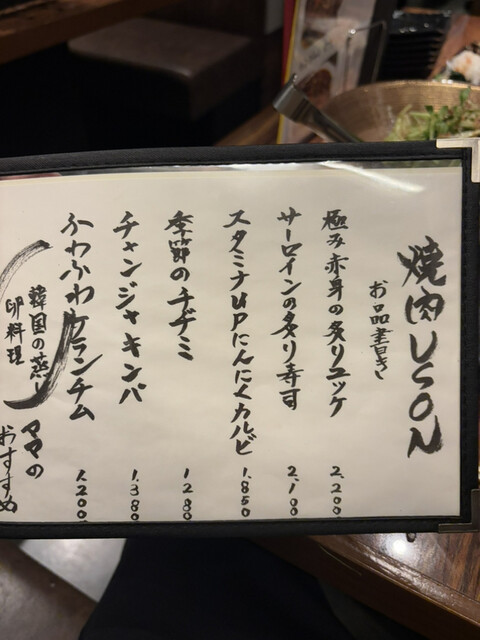 焼肉USON
お品書き
極み赤身の炙りユッケ 2,200
サーロインの炙り寿司 2,100
スタミナUPにんにくカルビ 1,850
季節のチヂミ 1280
チャンジャキンパ 1,380
ふわふわケランチム 1,200
韓国の蒸し
卵料理
ママの
おすすめ